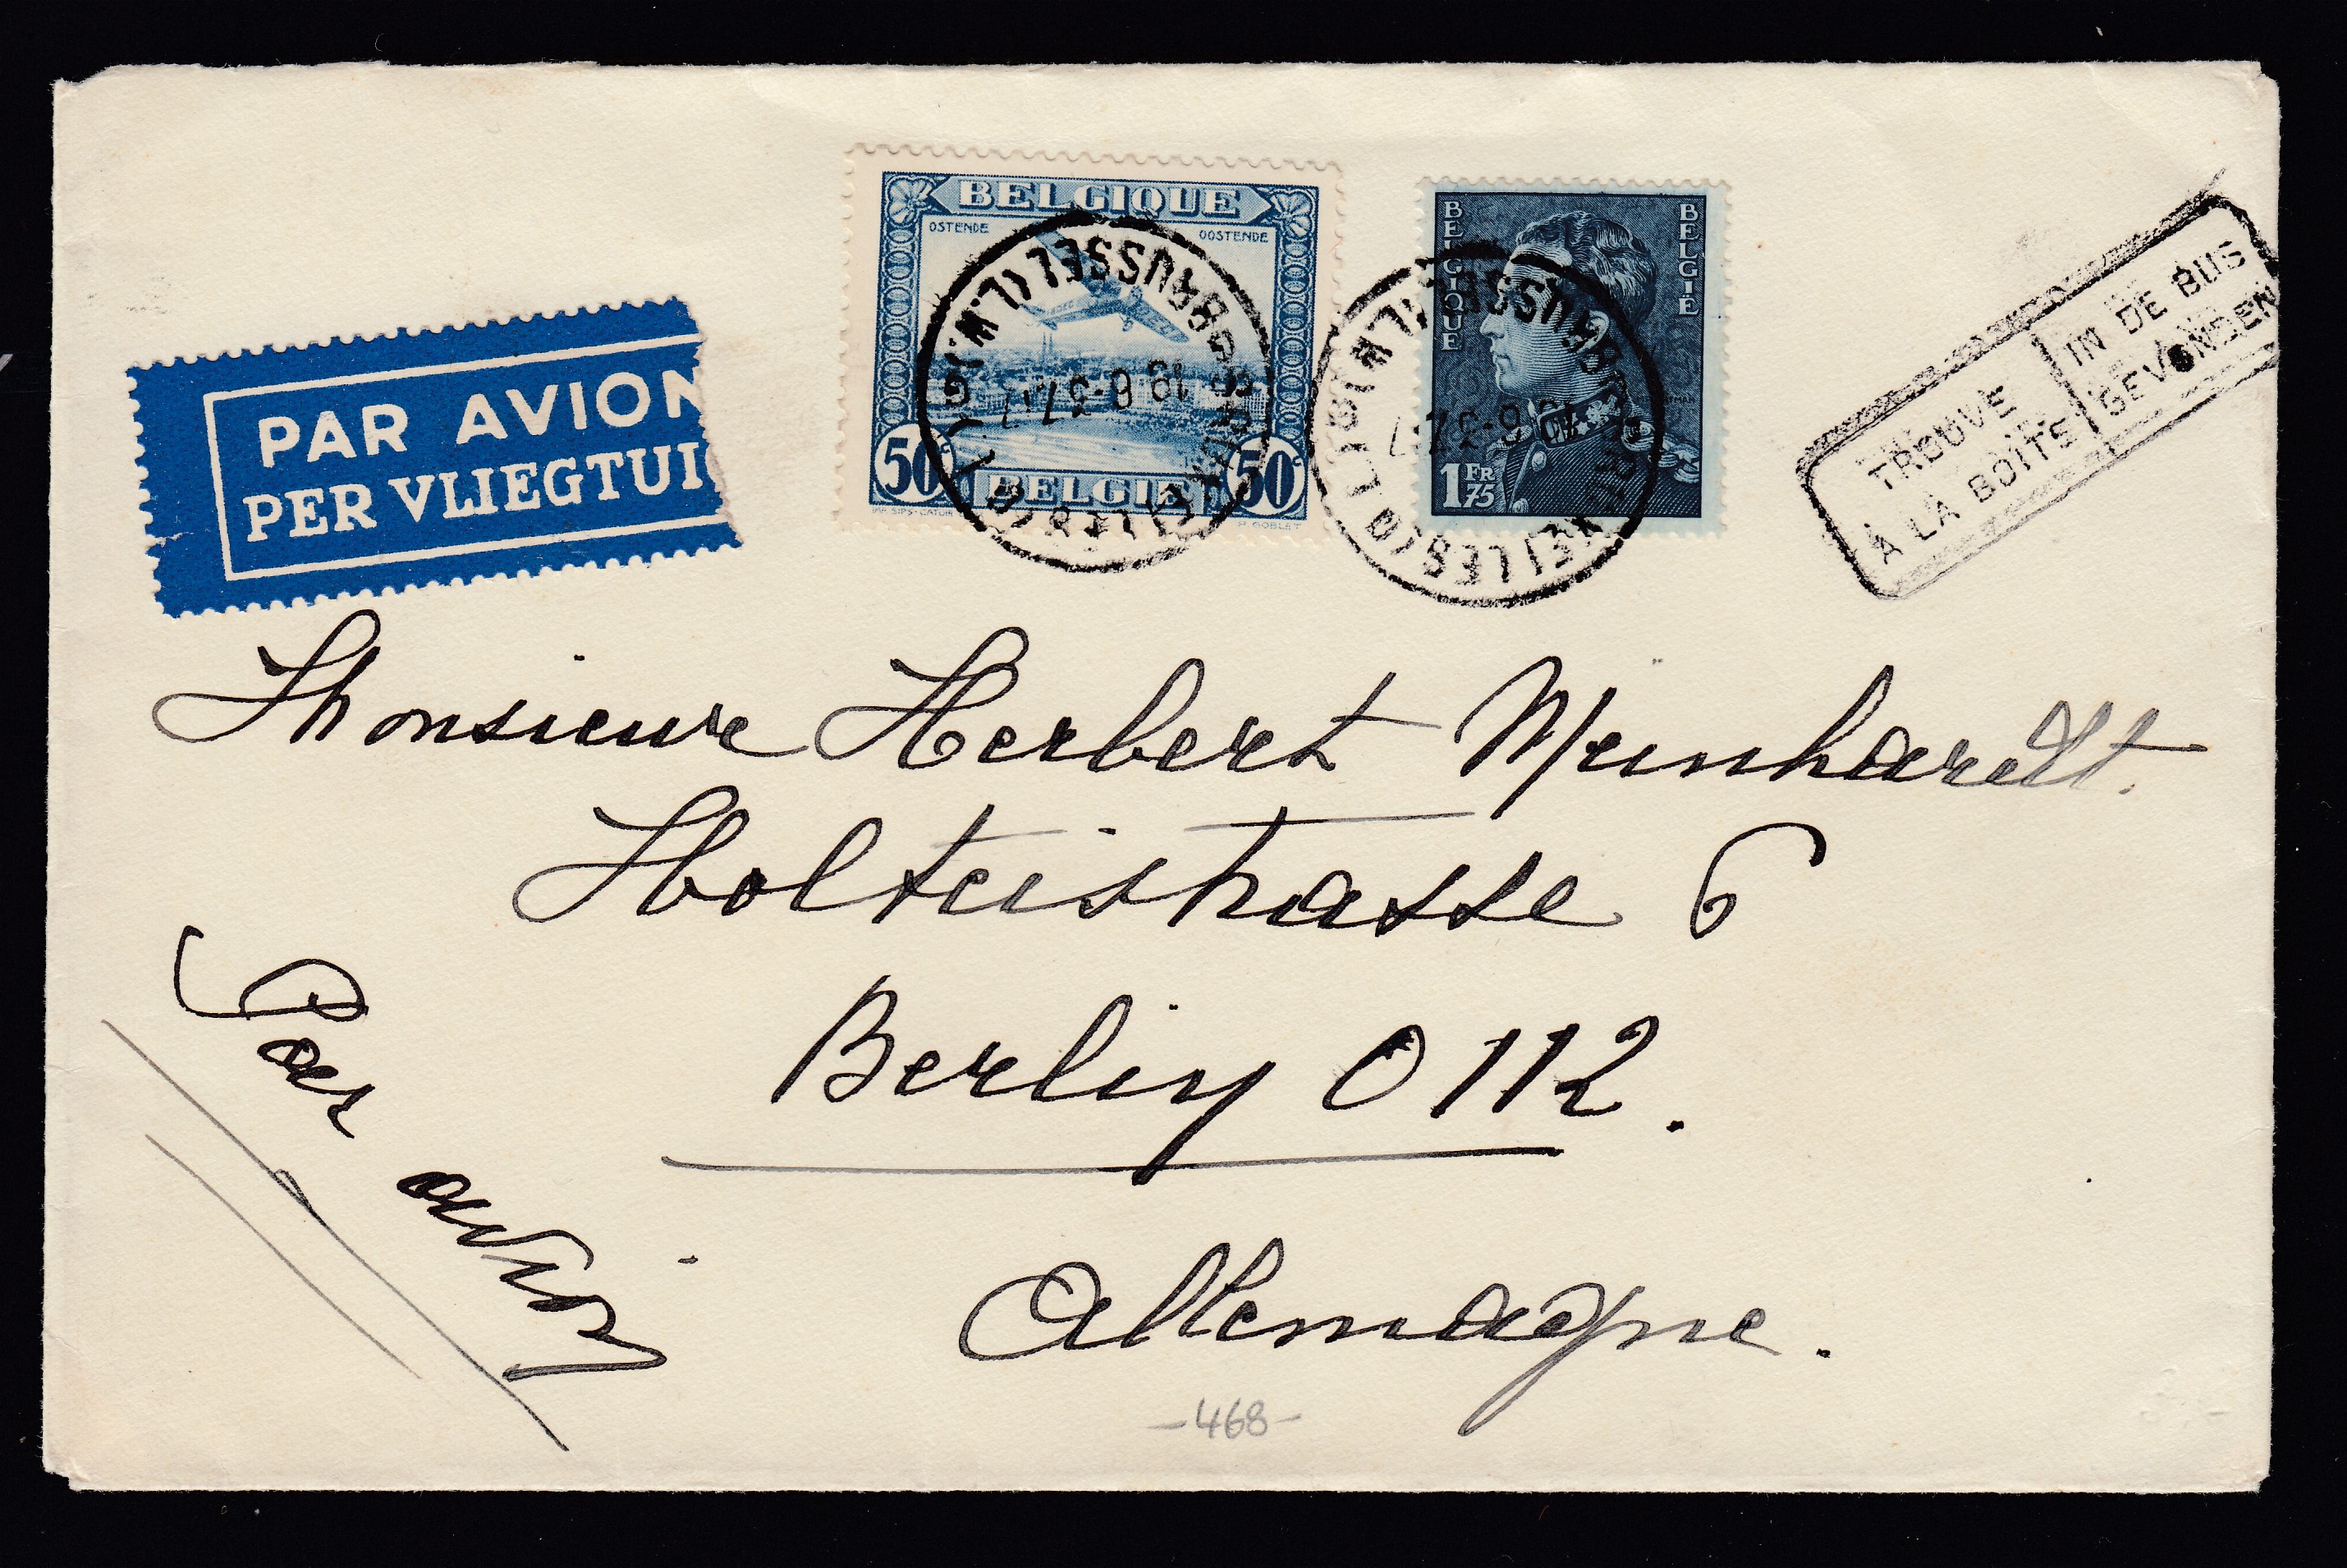 BELGIQUE
OSTENDE OOSTENDE
50c 50c
BELGIË
BELGIQUE BELGIË
1 FR 75
BRUSSEL
BRUSSEL
TROUVÉ
À LA BOITE
IN DE BUS
GEVONDEN
PAR AVION
PER VLIEGTUI
Monsieur Herbert Meinhardt.
Holteistrasse 6
Berlin O 112.
Par avion
Allemagne.
-468-